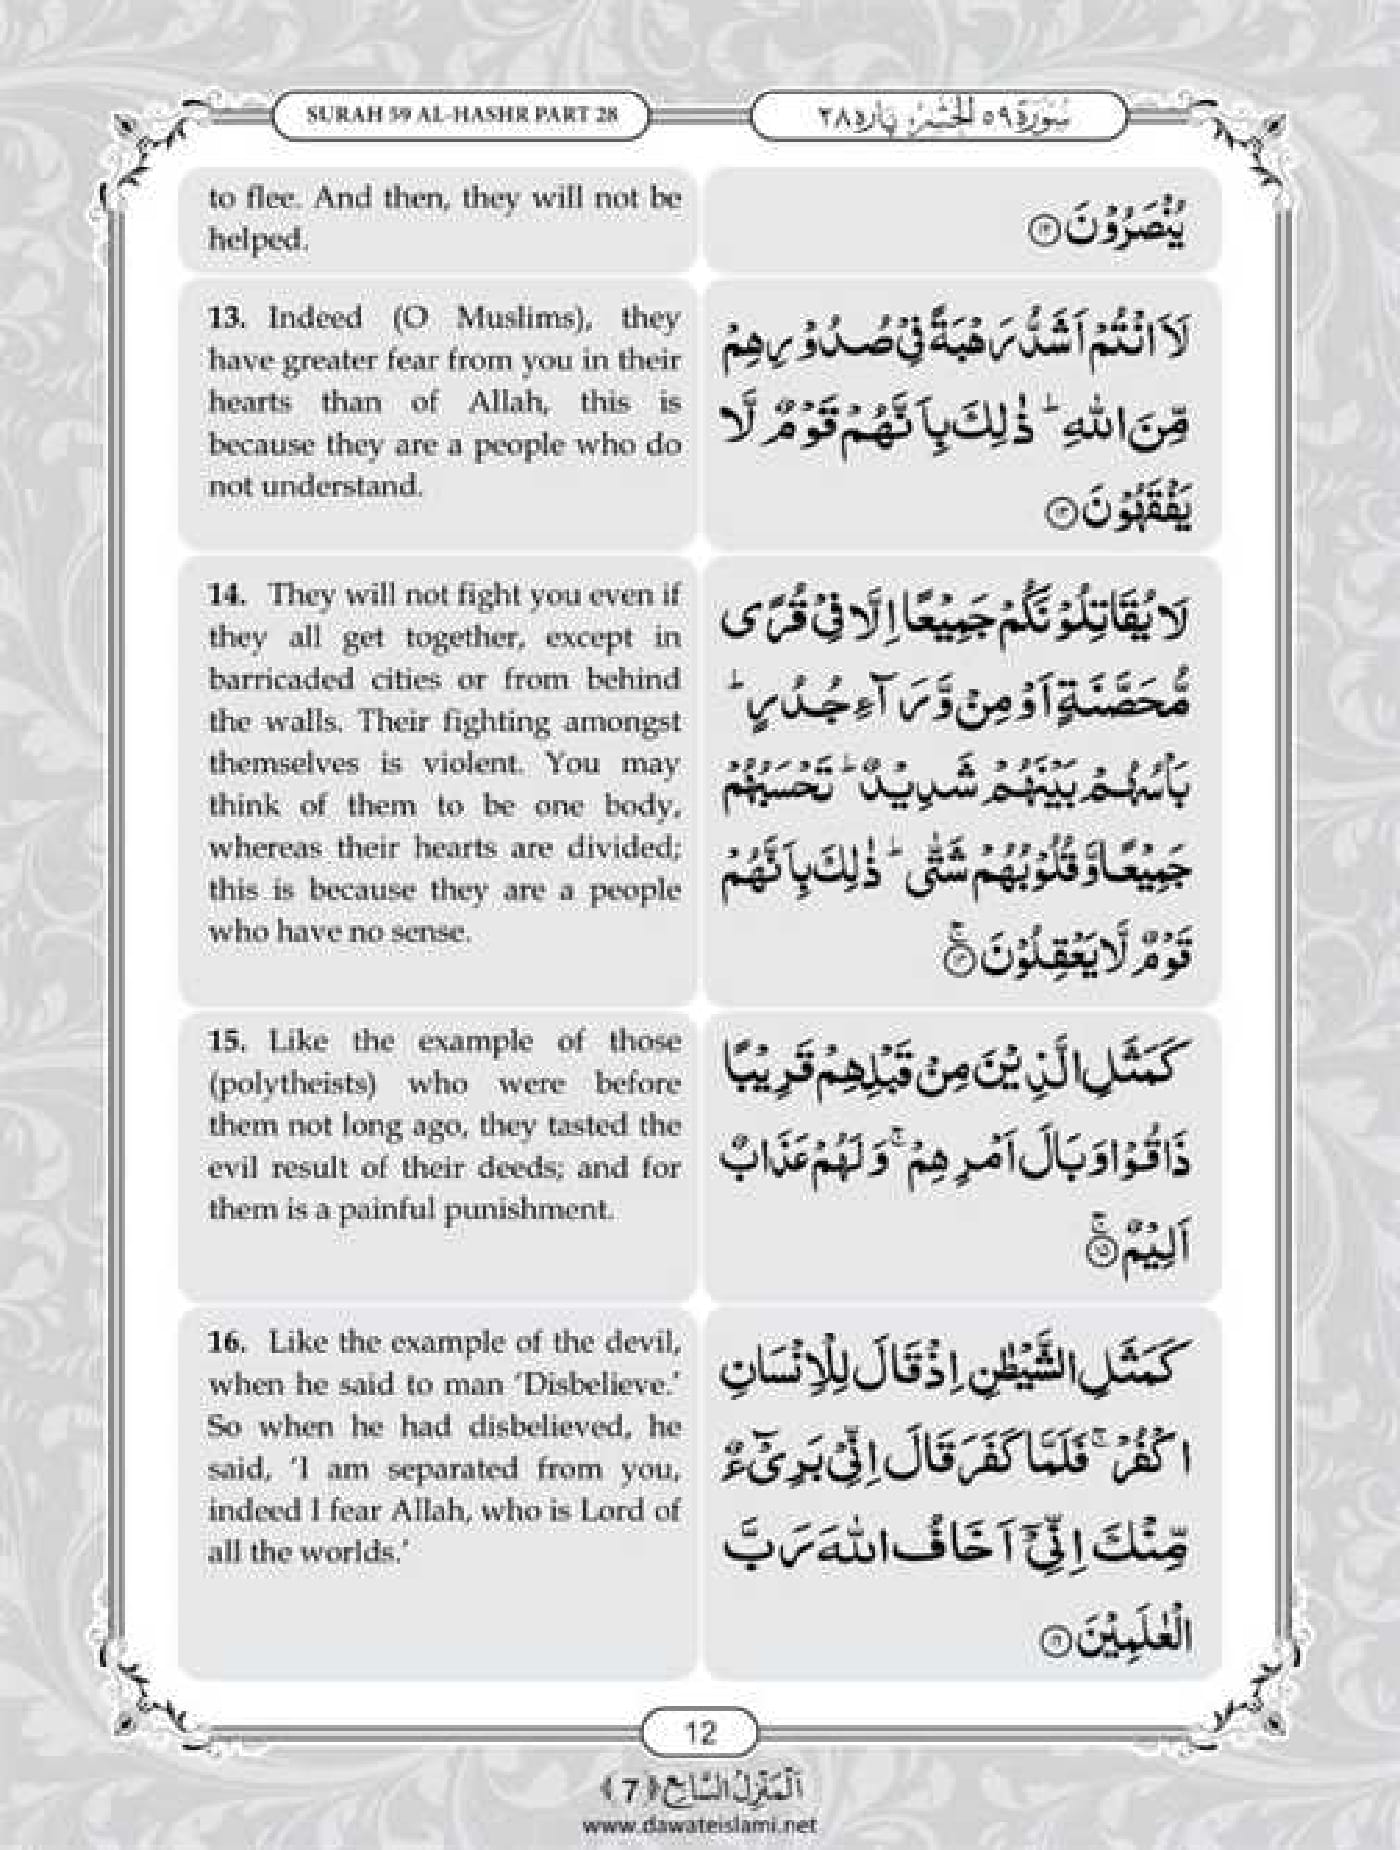 SURAH 59 AL-HASHR PART 28
سُوْرَة ٥٩ اَلْحَشْر، پاره ٢٨
to flee. And then, they will not be
helped.
يُنْصَرُوْنَ ﴿۱۲﴾
13. Indeed (O Muslims), they
have greater fear from you in their
hearts than of Allah, this is
because they are a people who do
not understand.
لَاَ انْتُمْ اَشَدُّ رَهْبَةً فِیْ صُدُوْرِهِمْ
مِّنَ اللهِ ؕ ذٰلِكَ بِاَنَّهُمْ قَوْمٌ لَّا
یَفْقَهُوْنَ ﴿۱۳﴾
14. They will not fight you even if
they all get together, except in
barricaded cities or from behind
the walls. Their fighting amongst
themselves is violent. You may
think of them to be one body,
whereas their hearts are divided;
this is because they are a people
who have no sense.
لَا یُقَاتِلُوْنَكُمْ جَمِیْعًا اِلَّا فِیْ قُرًی
مُّحَصَّنَةٍ اَوْ مِنْ وَّرَآءِ جُدُرٍ ؕ
بَاْسُهُمْ بَیْنَهُمْ شَدِیْدٌ ؕ تَحْسَبُهُمْ
جَمِیْعًا وَّ قُلُوْبُهُمْ شَتّٰی ؕ ذٰلِكَ بِاَنَّهُمْ
قَوْمٌ لَّا یَعْقِلُوْنَ ﴿ۚ۱۴﴾
15. Like the example of those
(polytheists) who were before
them not long ago, they tasted the
evil result of their deeds; and for
them is a painful punishment.
كَمَثَلِ الَّذِیْنَ مِنْ قَبْلِهِمْ قَرِیْبًا
ذَاقُوْا وَبَالَ اَمْرِهِمْ ۚ وَ لَهُمْ عَذَابٌ
اَلِیْمٌ ﴿ۚ۱۵﴾
16. Like the example of the devil,
when he said to man ‘Disbelieve.’
So when he had disbelieved, he
said, ‘I am separated from you,
indeed I fear Allah, who is Lord of
all the worlds.’
كَمَثَلِ الشَّیْطٰنِ اِذْ قَالَ لِلْاِنْسَانِ
اكْفُرْ ۚ فَلَمَّا كَفَرَ قَالَ اِنِّیْ بَرِیْٓءٌ
مِّنْكَ اِنِّیْۤ اَخَافُ اللهَ رَبَّ
الْعٰلَمِیْنَ ﴿۱۶﴾
12
اَلْمَنْزِلُ السَّابِع ﴿7﴾
www.dawateislami.net